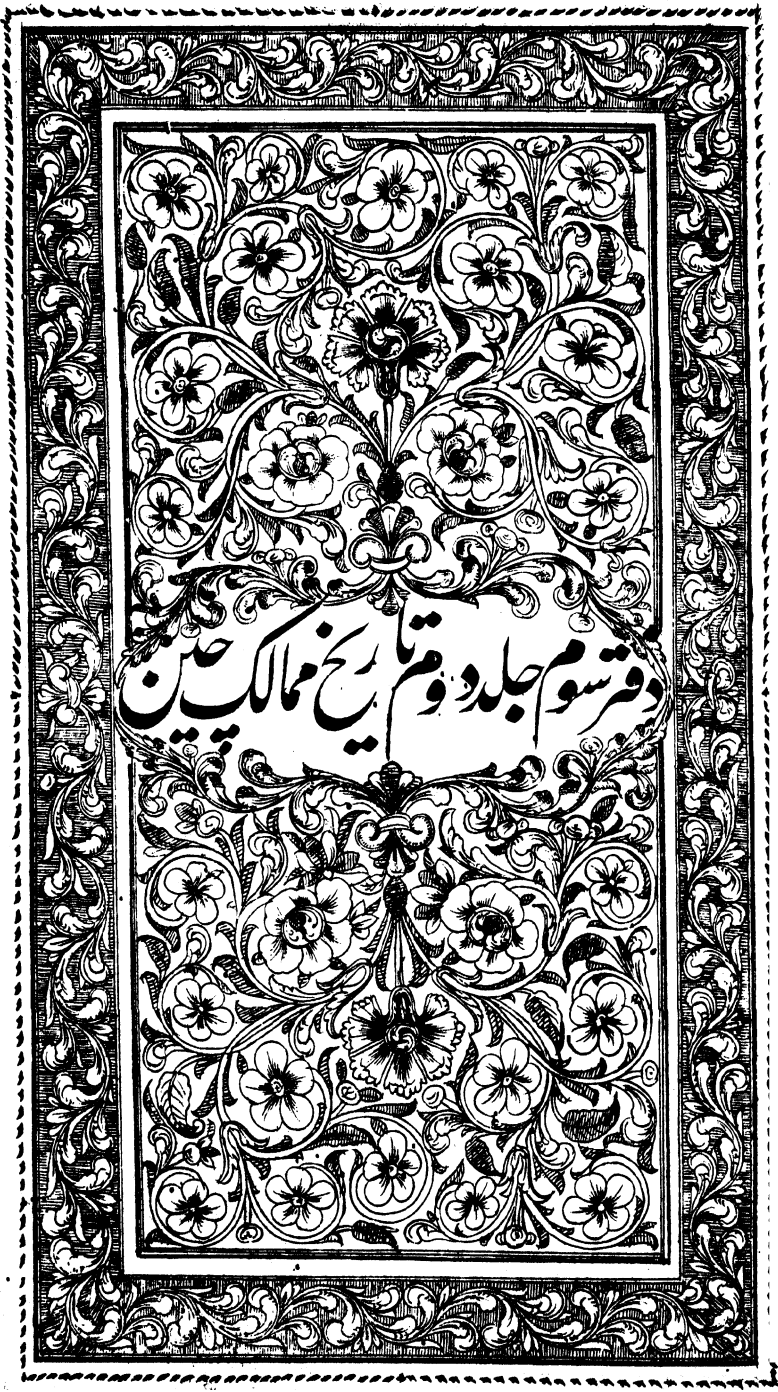 دفتر سوم جلد دوم تاریخ ممالک چین